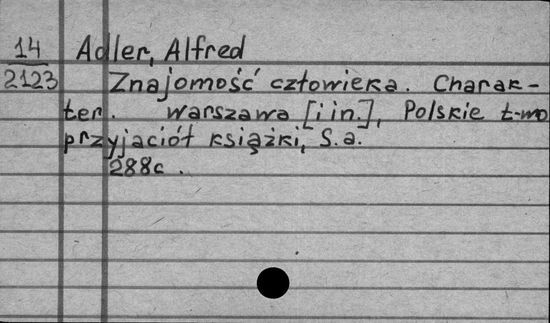 14 Adler, Alfred
2123 Znajomość człowieka. Charak-
ter. Warszawa [i in.], Polskie t-wo
przyjaciół książki, S.a.
288c.